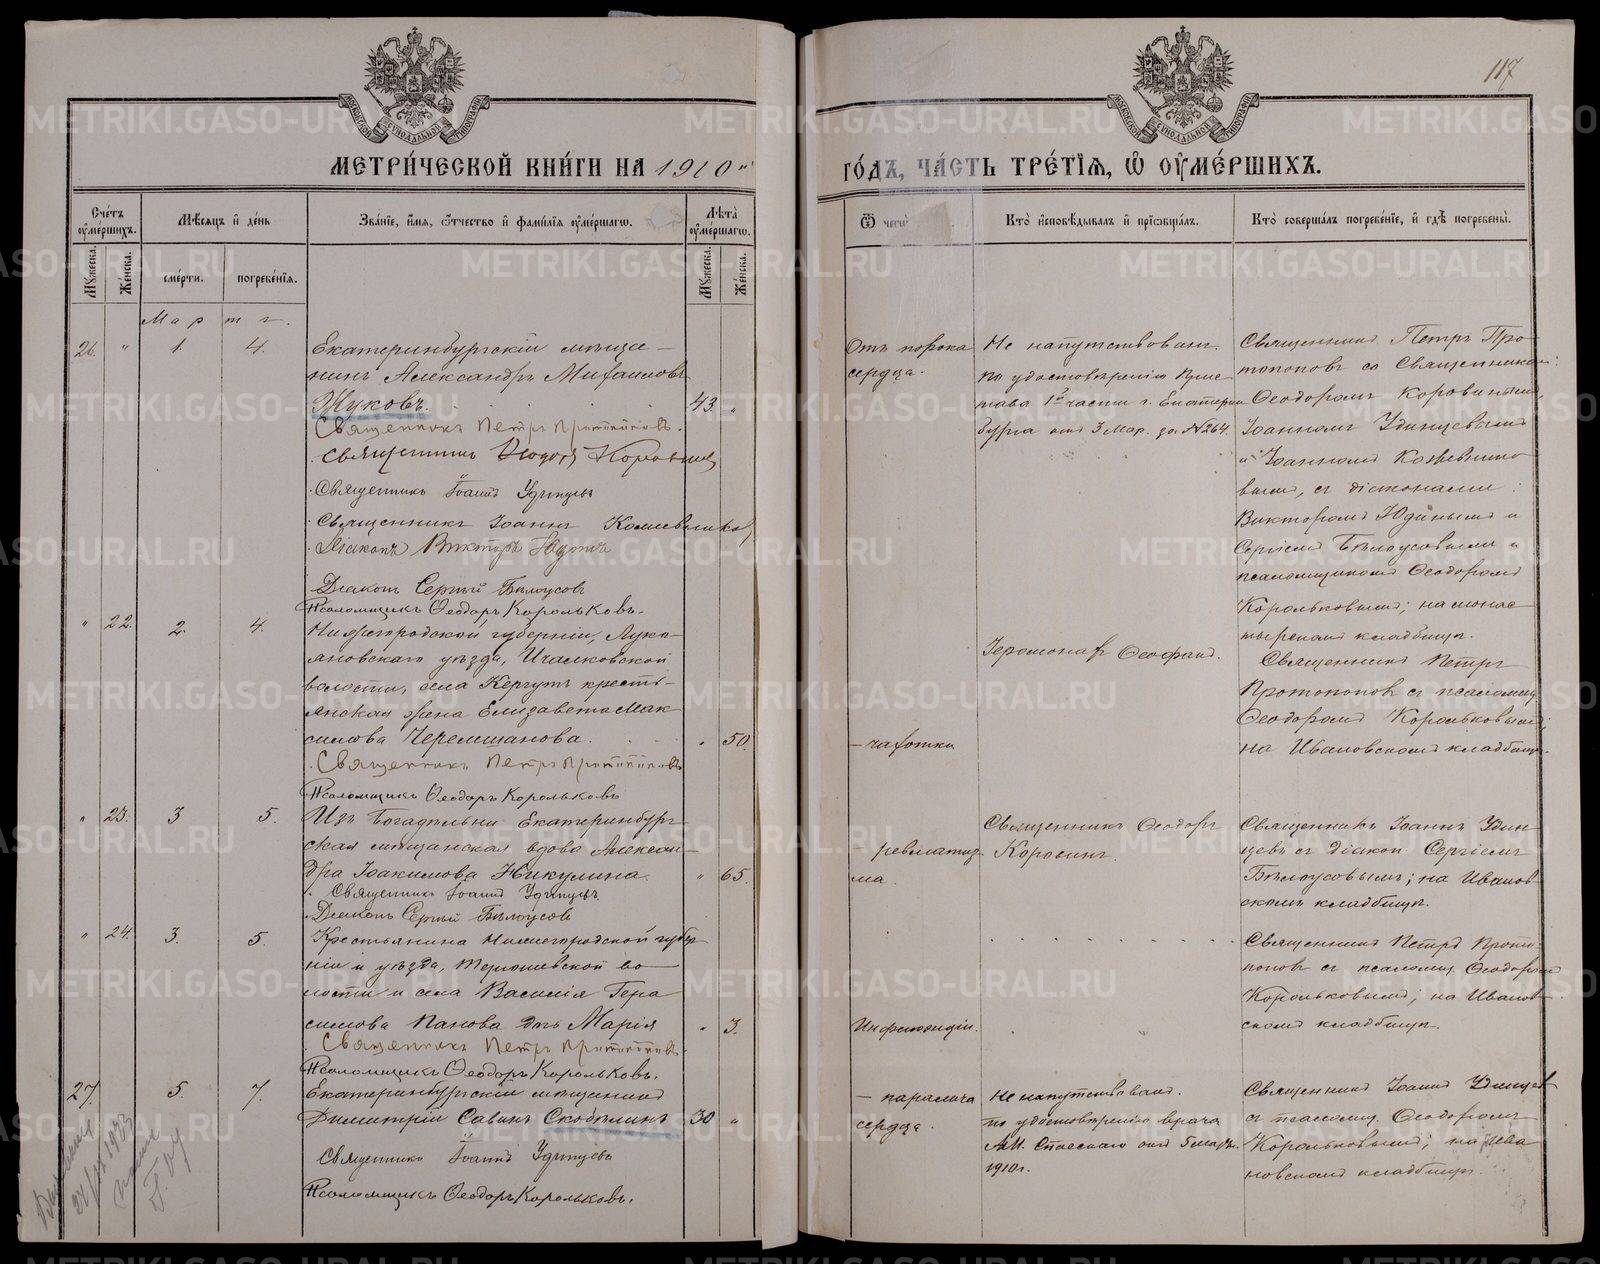 117
МЕТРИ́ЧЕСКОЙ КНИ́ГИ НА 1910 й
ГО́ДЪ, ЧА́СТЬ ТРЕ́ТІѦ, Ѽ ОУМЕ́РШИХЪ.
Сче́тъ оуме́ршихъ.
Мѣ́сяцъ и де́нь
Зва́нїе, и́мѧ, ѻ́тчество и фами́лїѧ оуме́ршагѡ.
Лѣта̀ оуме́ршагѡ.
Ѿ чегѡ̀
Кто̀ и҆сповѣ́дывалъ и҆ прїѡбща́лъ.
Кто̀ соверша́лъ погребе́нїе, и҆ гдѣ̀ погребены̀.
Мꙋжеска.
Же́нска.
сме́рти.
погребе́нїѧ.
Мꙋжеска.
Же́нска.
Мартъ.
26. " 1. 4.
Екатеринбургскій мѣща-
нинъ Александръ Михаиловъ
Жуковъ. 43. "
Священникъ Петръ Протопоповъ.
Священникъ Ѳеодоръ Коровинъ
Священникъ Іоаннъ Удинцевъ
Священникъ Іоаннъ Кожевниковъ
Діаконъ Викторъ Юдинъ
Діаконъ Сергій Бѣлоусовъ
Псаломщикъ Ѳеодоръ Корольковъ.
Отъ порока
сердца.
Не напутствованъ.
по удостовѣренію Прис
тава 1й части г. Екатерин
бурга отъ 3 Мар. за №264.
Священникъ Петръ Про-
топоповъ со Священниками:
Ѳеодоромъ Коровинымъ,
Іоанномъ Удинцевымъ
и Іоанномъ Кожевнико
вымъ, съ діаконами:
Викторомъ Юдинымъ и
Сергіемъ Бѣлоусовымъ и
псаломщикомъ Ѳеодоромъ
Корольковымъ; на монас
тырскомъ кладбищѣ.
" 22. 2. 4.
Нижегородской губерніи, Луко-
яновскаго уѣзда, Ичалковской
волости, села Кергутъ кресть-
янская жена Елизавета Мак
симова Черемшанова. " 50.
Священникъ Петръ Протопоповъ
Псаломщикъ Ѳеодоръ Корольковъ
— чахотки
Іеромонахъ Ѳеофанъ.
Священникъ Петръ
Протопоповъ съ псаломщ.
Ѳеодоромъ Корольковымъ;
на Ивановскомъ кладбищѣ.
" 23. 3 5.
Изъ Богадѣльни Екатеринбург-
ская мѣщанская вдова Алексан-
дра Іоакимова Никулина. " 65.
Священникъ Іоаннъ Удинцевъ.
Діаконъ Сергій Бѣлоусовъ
ревматиз-
ма.
Священникъ Ѳеодоръ
Коровинъ.
Священникъ Іоаннъ Удин-
цевъ съ діакон. Сергіемъ
Бѣлоусовымъ; на Иванов-
скомъ кладбищѣ.
" 24. 3. 5.
Крестьянина Нижегородской губер-
ніи и уѣзда, Терюшевской во-
лости и села Василія Гера
симова Панова дочь Марія " 3.
Священникъ Петръ Протопоповъ
Псаломщикъ Ѳеодоръ Корольковъ.
Инфлюэнціи.
Священникъ Петръ Прото-
поповъ съ псаломщ. Ѳеодоромъ
Корольковымъ; на Иванов-
скомъ кладбищѣ.
27. 5. 7.
Екатеринбургскій мѣщанинъ
Димитрій Савинъ Скобѣлинъ 30 "
Священникъ Іоаннъ Удинцевъ
Псаломщикъ Ѳеодоръ Корольковъ.
— паралича
сердца.
Не напутствованъ.
по удостовѣренію врача
А.И. Спасскаго отъ 5 марта
1910 г.
Священникъ Іоаннъ Удинцевъ
съ псаломщ. Ѳеодоромъ
Корольковымъ; на Ива
новскомъ кладбищѣ.
METRIKI.GASO-URAL.RU